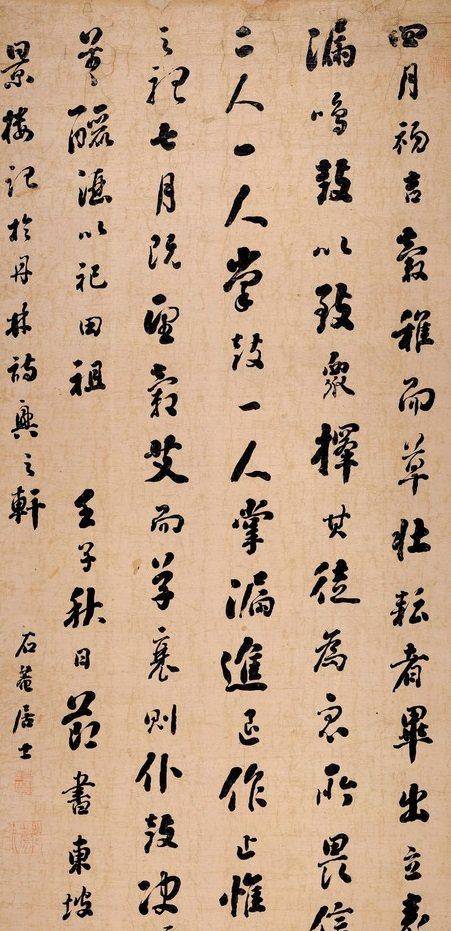 四月初吉穀稚而草壯耘者畢出立表
漏鳴鼓以致眾擇其徒為眾所畏信
二人一人掌鼓一人掌漏進退作止惟
之聽七月既望穀艾而草衰則仆鼓決
酒以祀田祖 壬子秋日節書東坡
景樓記於丹林詩興之軒 石菴居士